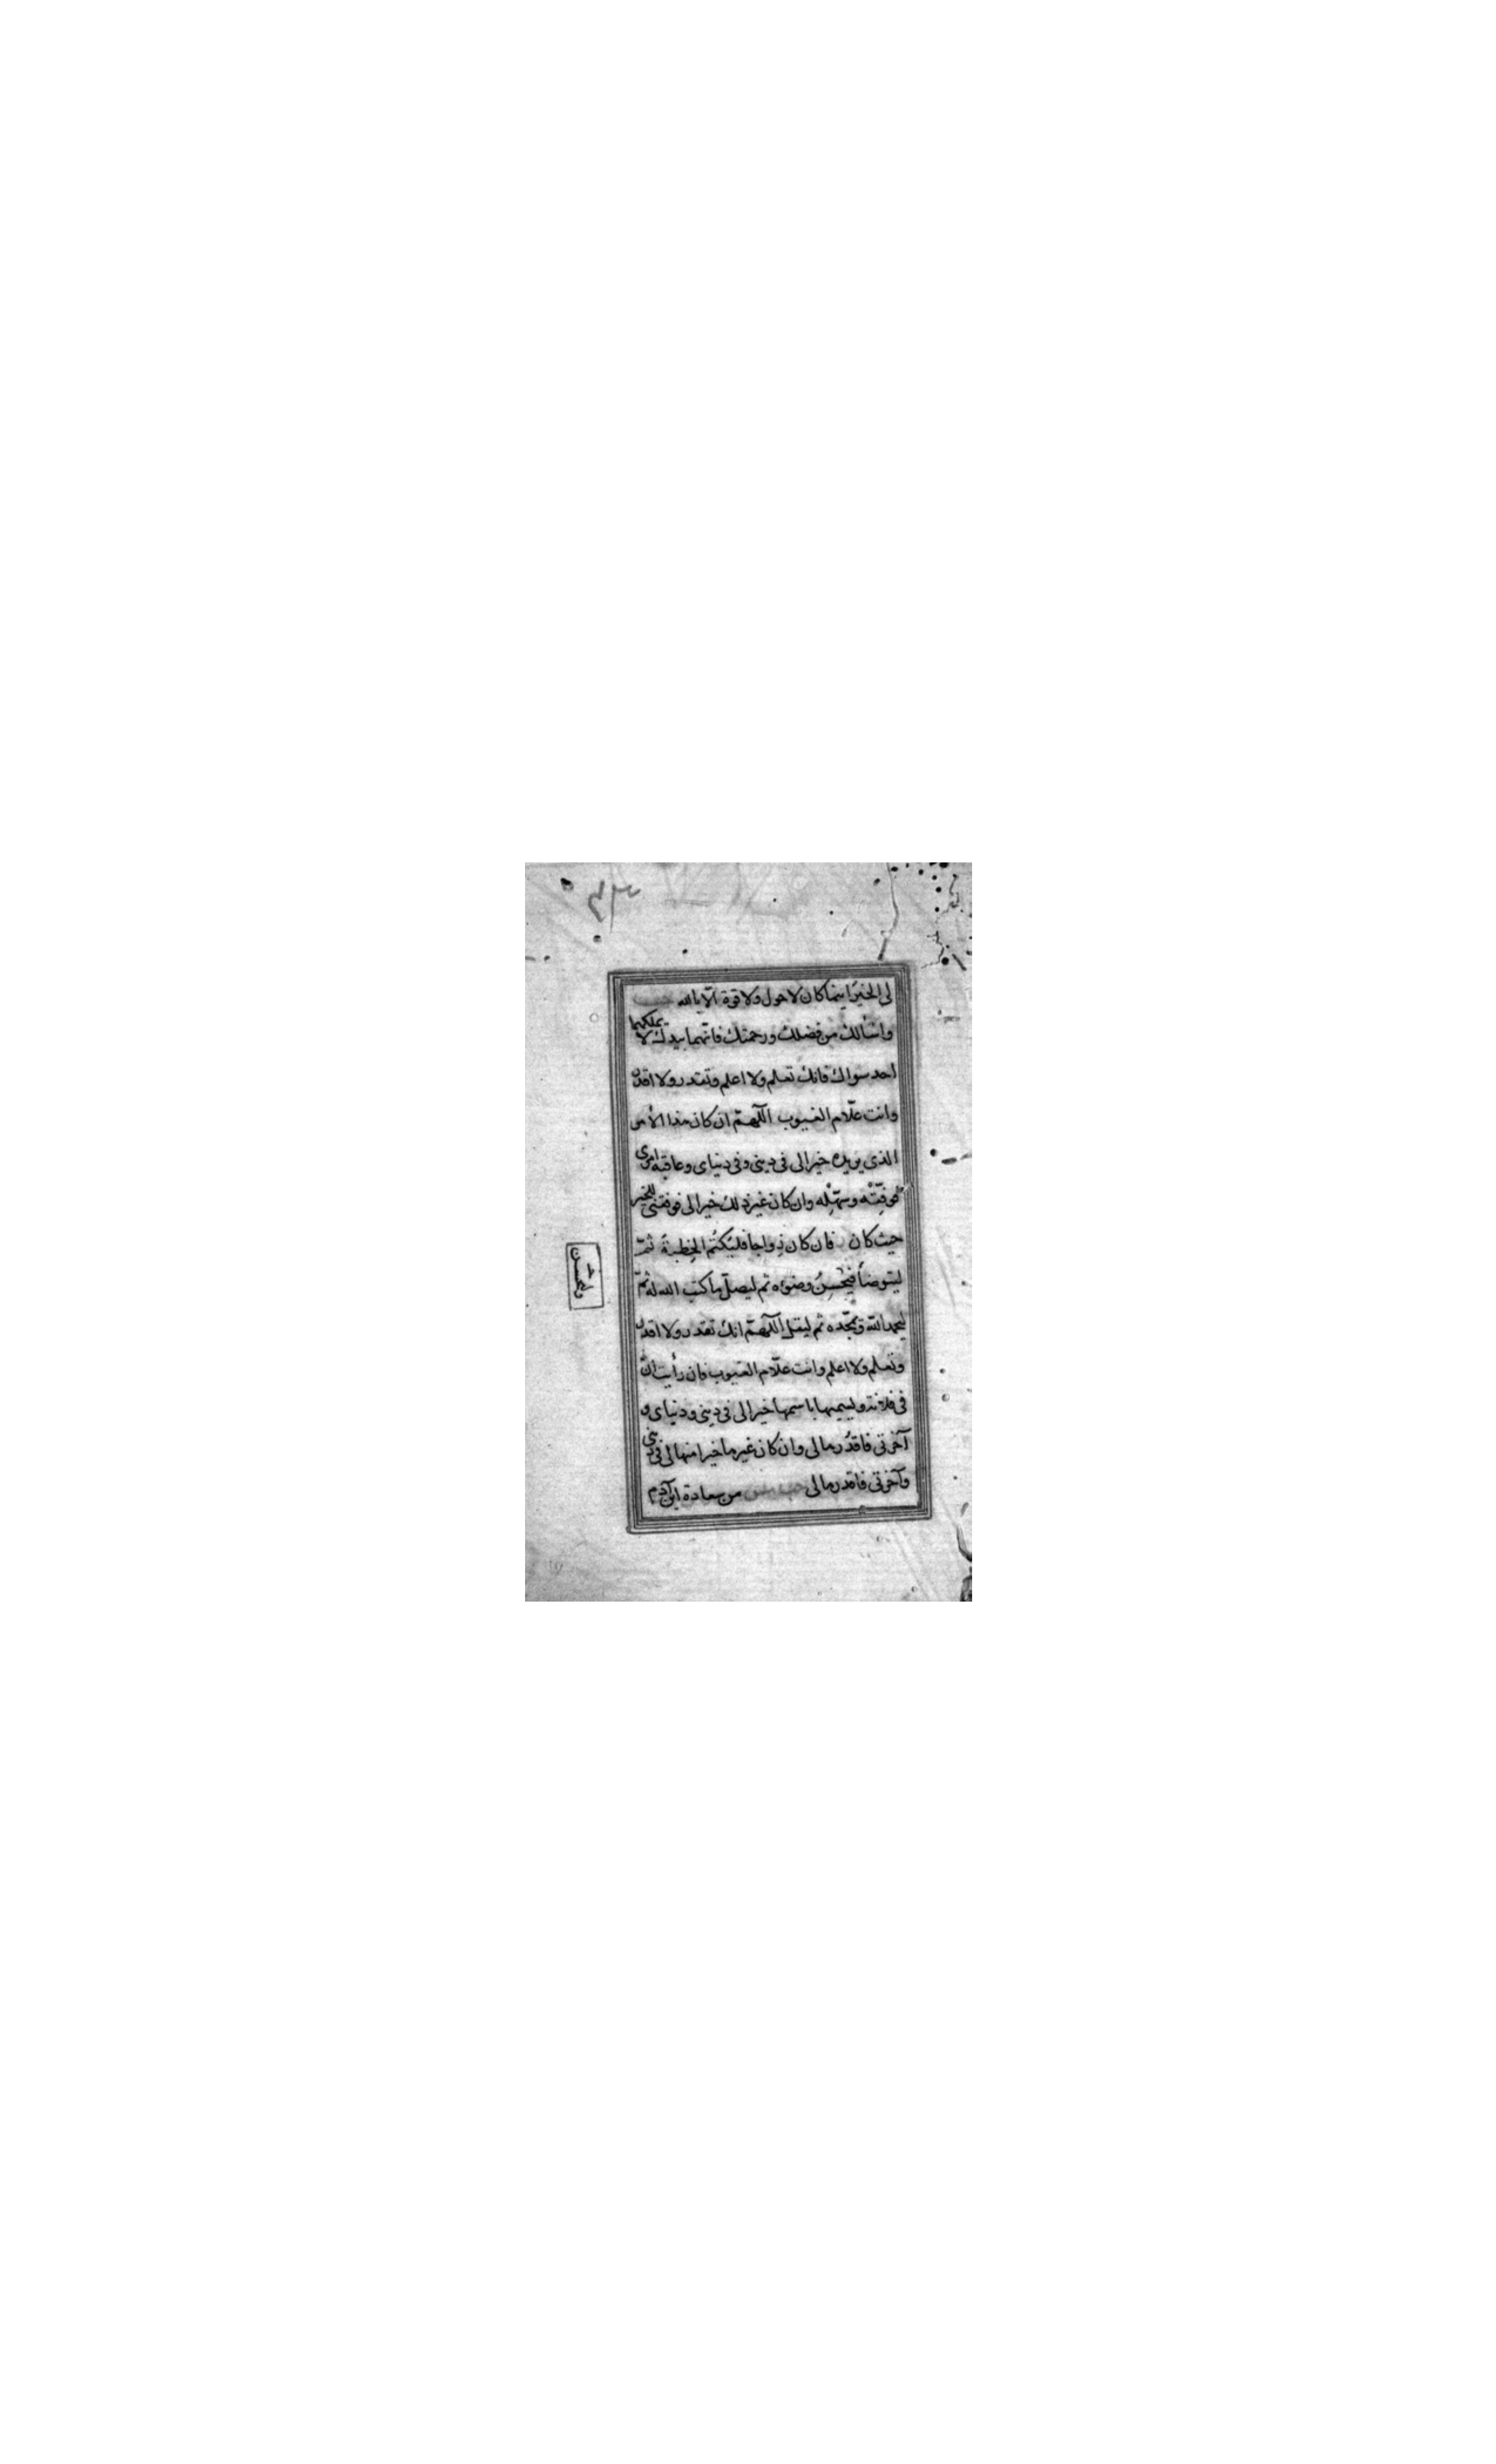 ٤٣
لى الخير اينما كان لا حول ولا قوة الّا بالله
واسألك من فضلك ورحمتك فانهما بيدك لا يملكهما
احد سواك فانك تعلم ولا اعلم وتقدر ولا اقدر
وانت علّام الغيوب اللّهمّ ان كان هذا الأمر
الذى يريده خيرا لى فى دينى وفى دنياى وعاقبة امرى
فوفّقه وسهّله وان كان غير ذلك خيرا لى فوفقنى للخير
حيث كان فان كان زواجا فليكتم الخطبة ثمّ
ليتوضأ فيحسن وضوءه ثم ليصلّ ما كتب الله له ثمّ
ليحمد الله ويمجّده ثم ليقل اللّهمّ انك تقدر ولا اقدر
وتعلم ولا اعلم وانت علّام الغيوب فان رأيت انّ
فى فلانة ويسميها باسمها خيرا لى فى دينى ودنياى و
آخرتى فاقدُرها لى وان كان غيرها خيرا منها لى فى دينى
وآخرتى فاقدرها لى من سعادة ابن آدم